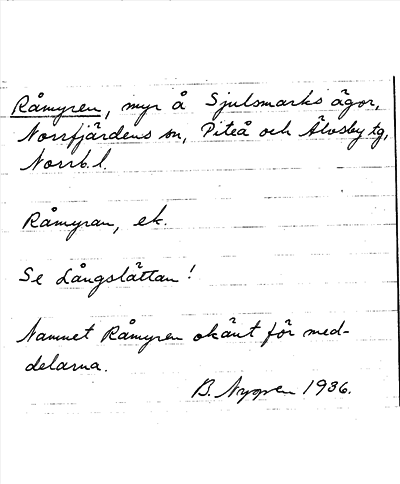 Råmyren, myr å Sjulsmarks ägor,
Norrfjärdens sn, Piteå och Älvsby tg,
Norrb. l.
Råmyran, ek.
Se Långslåttan!
Namnet Råmyren okänt för med-
delarna.
B. Nygren 1936.